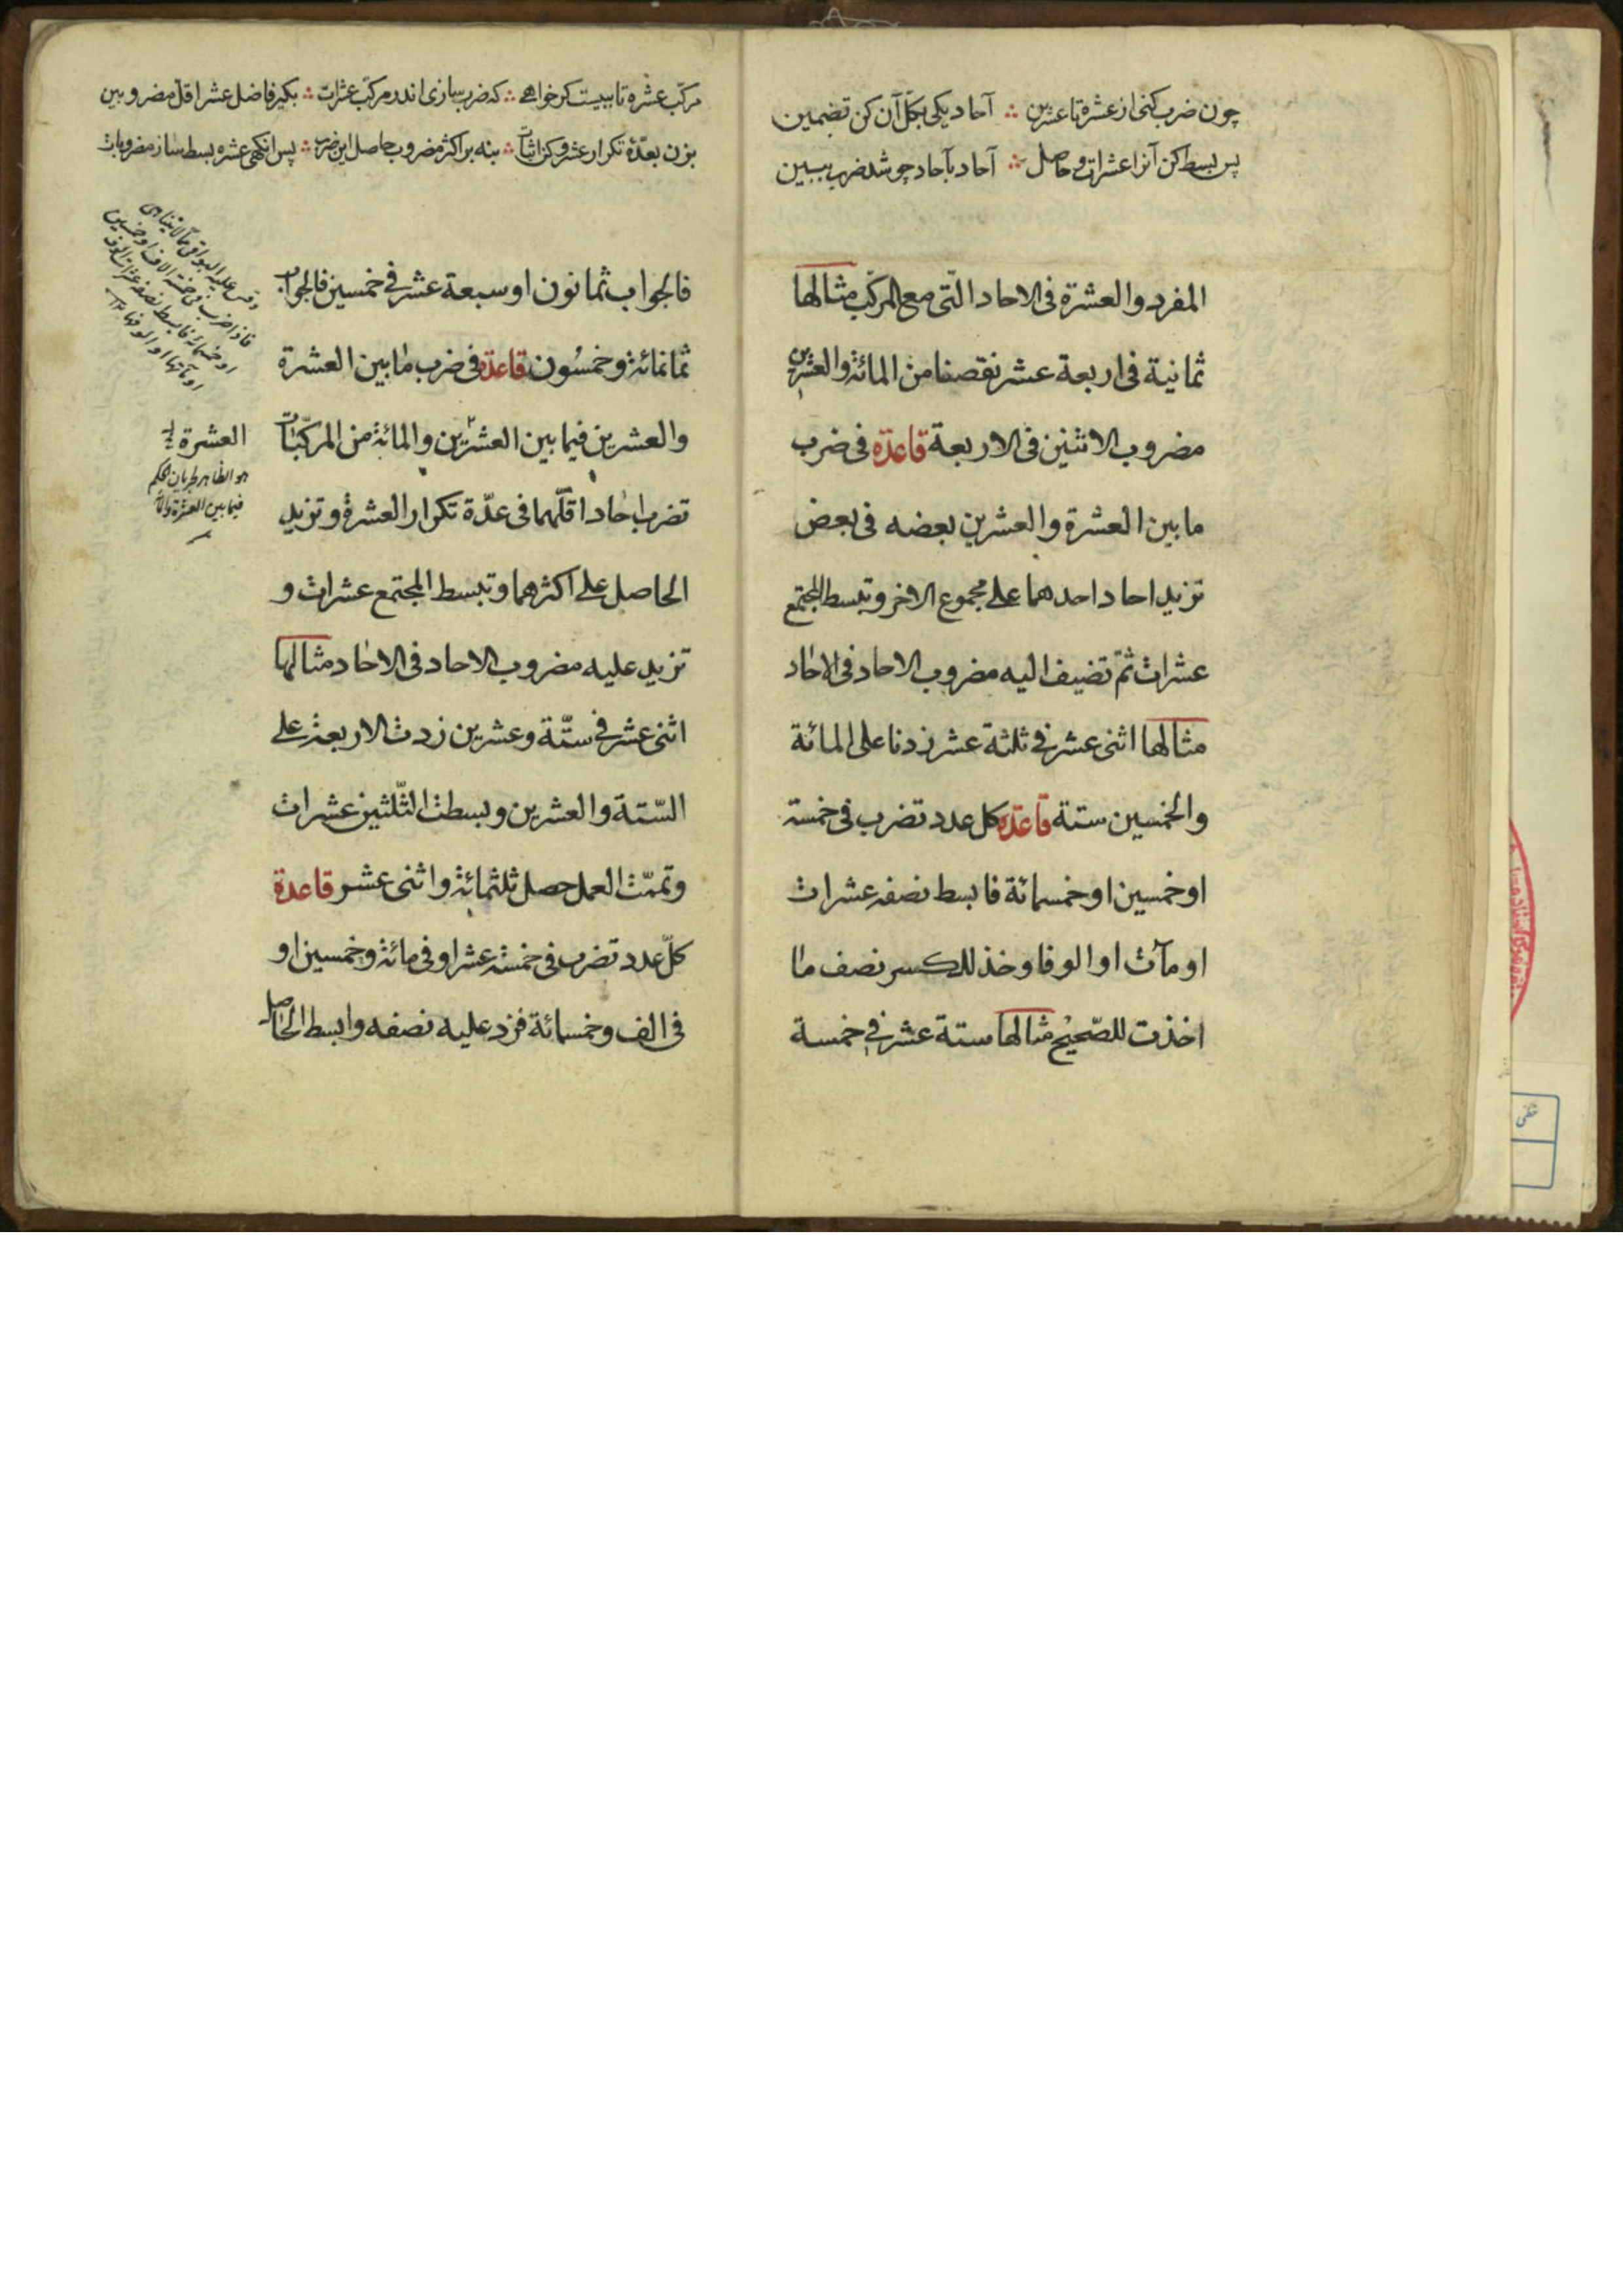 چون ضرب کنی از عشره تا عشرین ∴ آحاد یکی بکل آن کن تضمین
پس بسط کن آنرا عشرات و حاصل ∴ آحاد بآحاد چو شد ضرب ببین
المفرد والعشرة فى الاحاد التّى مع المركّب مثالها
ثمانية فى اربعة عشر نقصنا من المائة والعشرين
مضروب الاثنين فى الاربعة قاعدة فى ضرب
ما بين العشرة والعشرين بعضه فى بعض
تزيد احاد احدهما على مجموع الاخر وتبسط المجتمع
عشرات ثمّ تضيف اليه مضروب الاحاد فى الاحاد
مثالها اثنى عشر فى ثلثة عشر زدنا على المائة
والخمسين ستة قاعدة كل عدد تضرب فى خمسة
او خمسين او خمسمائة فابسط نصفه عشرات
او مآت او الوفا وخذ للكسر نصف ما
اخذت للصّحيح مثالها ستة عشر فى خمسة
مركّب عشره تا بیست گر خواهے ∴ که ضرب سازی اندر مرکّب عشرات ∴ بگیر فاضل عشر اقل مضروبین
بزن بعدّهٔ تکرار عشر و کن اثبات ∴ بنه بر اکثر مضروب حاصل این ضرب ∴ پس انگهی عشره بسط ساز مضروبات
فالجواب ثمانون او سبعة عشر فى خمسين فالجواب
ثمانمائة وخمسُون قاعدة فى ضرب ما بين العشرة
والعشرين فيما بين العشرين والمائة من المركّبات
تضرب احاد اقلّهما فى عدّة تكرار العشرة وتزيد
الحاصل على اكثرهما وتبسط المجتمع عشرات و
تزيد عليه مضروب الاحاد فى الاحاد مثالها
اثنى عشر فى ستّة وعشرين زدت الاربعة على
السّتة والعشرين وبسطت الثّلثين عشرات
وتممّت العمل حصل ثلثمائة واثنى عشر قاعدة
كلّ عدد تضرب فى خمسة عشر او فى مائة وخمسين او
فى الف وخمسمائة فزد عليه نصفه وابسط الحاصل
العشرة
هو الظاهر لجريان الحكم
فيما بين العشرة